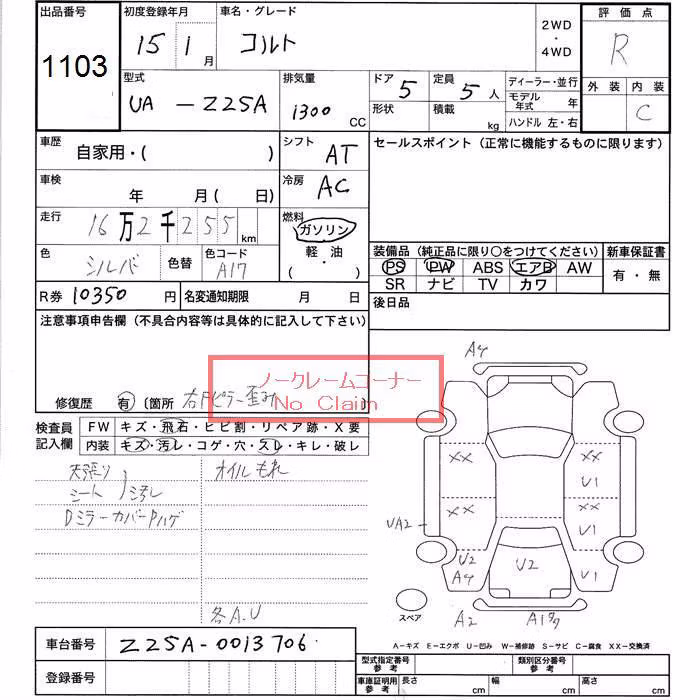 出品番号
1103
初度登録年月
15 1 月
車名・グレード
コルト
2WD
・
4WD
評価点
R
外装 内装
C
型式
UA - Z25A
排気量
1300 CC
ドア 5
形状
定員 5 人
積載 kg
ディーラー・並行
モデル年式 年
ハンドル 左・右
車歴
自家用・( )
シフト AT
セールスポイント (正常に機能するものに限ります)
車検
年 月 ( 日)
冷房 AC
走行
16万2千255 km
燃料
ガソリン
軽・油
( ・ )
色
シルバ
色替
色コード
A17
装備品 (純正品に限り○をつけてください)
新車保証書
PS PW ABS エアB AW
SR ナビ TV カワ
有・無
R券 10350 円
名変通知期限 月 日
後日品
注意事項申告欄 (不具合内容等は具体的に記入して下さい)
ノークレームコーナー
No Claim
修復歴 有 〔箇所 右Fピラー歪み 〕
検査員
記入欄
FW キズ・飛石・ヒビ割・リペア跡・X要
内装 キズ・汚レ・コゲ・穴・スレ・キレ・破レ
天張り
シート 汚レ
Dミラーカバーアハゲ
オイルもれ
各A.U
A4
XX XX
U1
XX XX
UA2 U1
U2
A4
U2
U1
スペア
A2
A1多
A-キズ E-エクボ U-凹み W-補修跡 S-サビ C-腐食 XX-交換済
車台番号 Z25A-0013706
登録番号
型式指定番号
参考
類別区分番号
参考
車庫証明用
参考
長さ cm
幅 cm
高さ cm